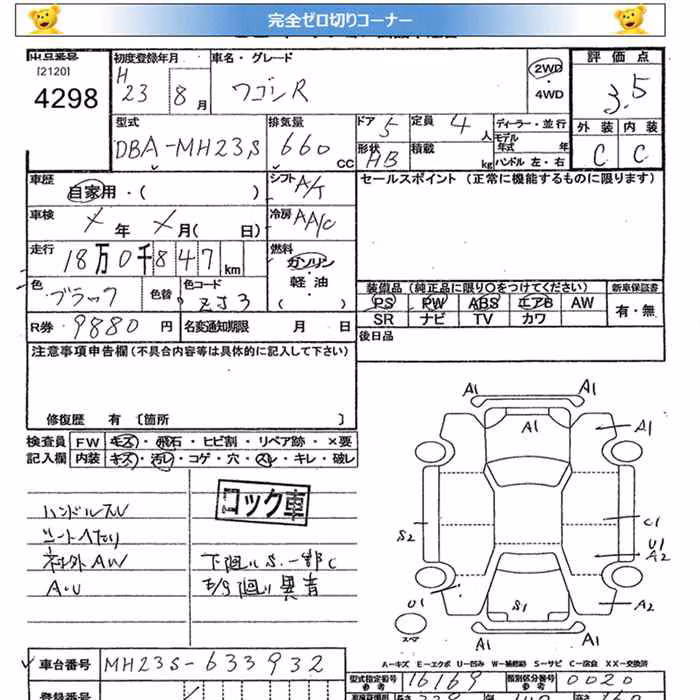 完全ゼロ切りコーナー
出品番号
[2120]
4298
初度登録年月
H
23 8月
車名・グレード
ワゴンR
2WD
・
4WD
評価点
3.5
型式
DBA-MH23S
排気量
660 CC
ドア 5
定員 4 人
ディーラー・並行
形状 HB
積載 kg
モデル年式 年
ハンドル 左・右
外装 内装
C C
車歴
自家用・( )
シフト A/T
セールスポイント (正常に機能するものに限ります)
車検
年 月( 日)
冷房 AAC
走行
18万0千847km
燃料
ガソリン
軽油
・( )
色
ブラック
色替
色コード
ZJ3
装備品(純正品に限り○をつけてください)
新車保証書
PS PW ABS エアB AW
有・無
SR ナビ TV カワ
R券 9880円
名変通知期限 月 日
後日品
注意事項申告欄(不具合内容等は具体的に記入して下さい)
修復歴 有 〔箇所 〕
検査員 FW キズ・飛石・ヒビ割・リペア跡・×要
記入欄 内装 キズ・汚レ・コゲ・穴・スレ・キレ・破レ
コック車
ハンドルスレ
シートヘタリ
社外AW
A・U
下廻りS.一部C
A1 A1
A1
A1
S2
C1
U1
A2
U1
S1
A2
スペア
A1 A1
A－キズ E－エクボ U－凹み W－補修跡 S－サビ C－腐食 XX－交換済
車台番号 MH23S-633932
型式指定番号 参考 16169
類別区分番号 参考 0020
登録番号